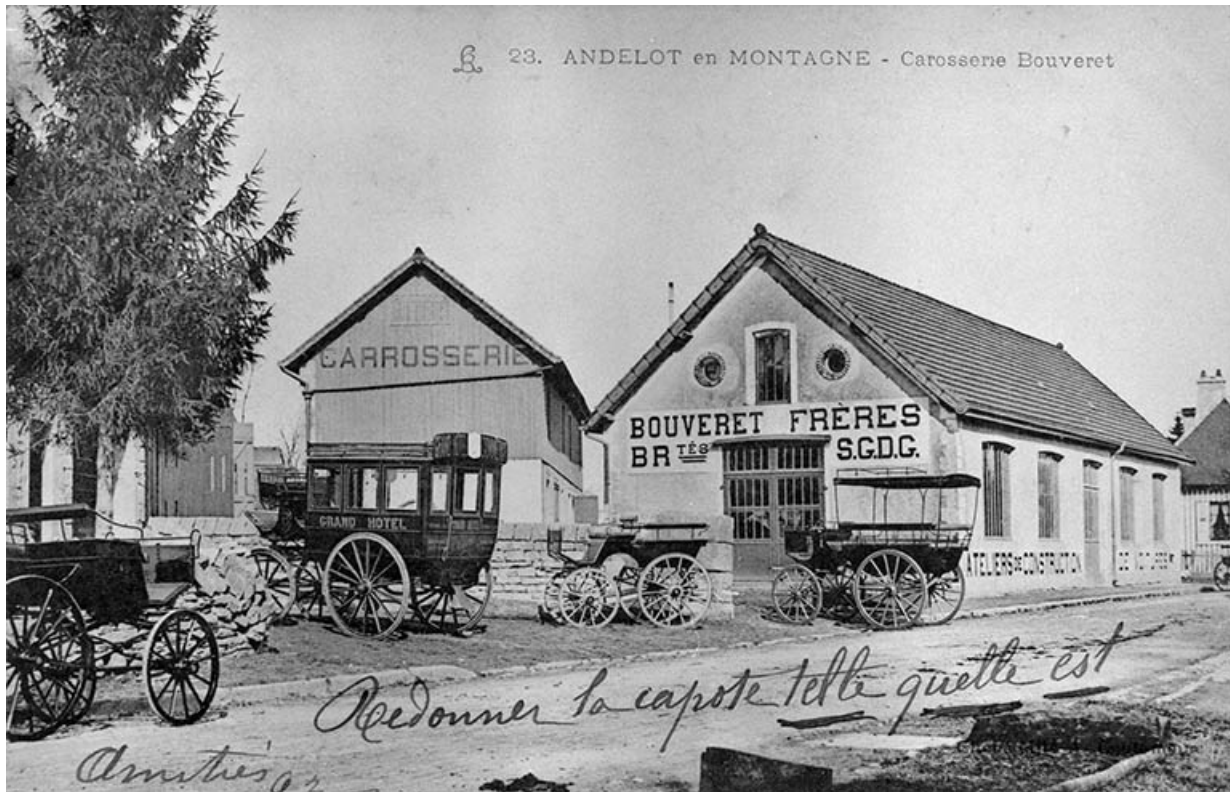 23. ANDELOT en MONTAGNE - Carosserie Bouveret
CARROSSERIE
BOUVERET FRÈRES
BRTÉS S.G.D.G.
GRAND HOTEL
ATELIERS DE CONSTRUCTION
Redonner la capote telle quelle est
Amitiés